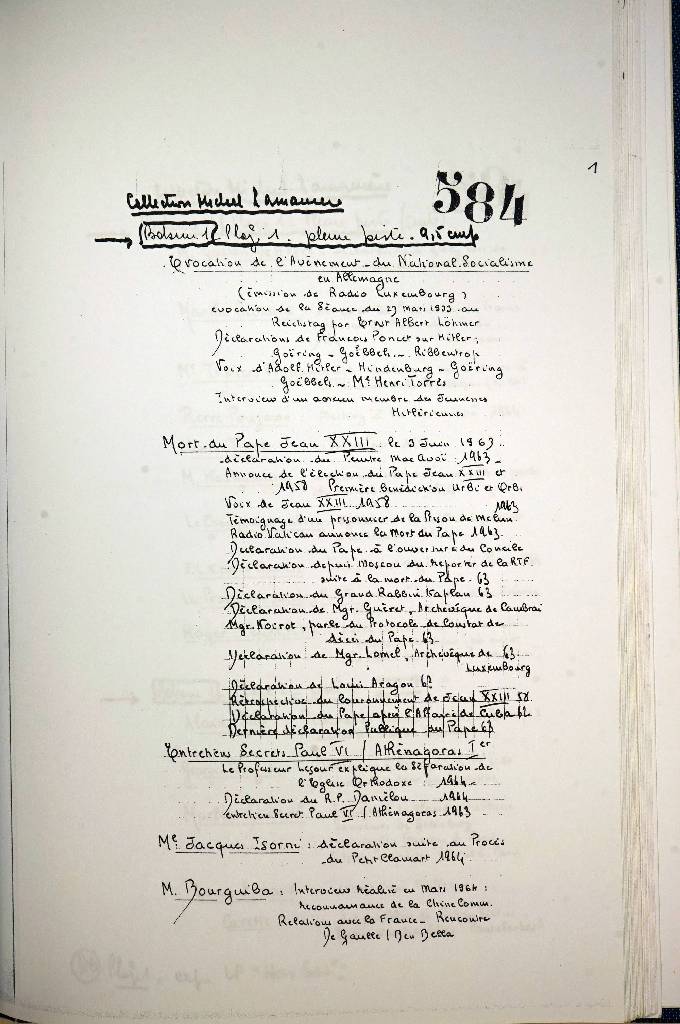 1
584
Collection Michel
Bobine 1 Plage 1. pleine piste. 9,5 cm/s
Evocation de l'Avènement du National Socialisme
en Allemagne
(émission de Radio Luxembourg)
evocation de la Séance du 23 Mars 1933 au
Reichstag par Ernst Albert Löhmer
Déclarations de François Poncet sur Hitler,
Goëring - Goëbbels - Ribbentrop
Voix d'Adolf Hitler - Hindenburg - Goëring
Goëbbels - Me Henri Torrès
Interview d'un ancien membre des Jeunesses
Hitlériennes
Mort du Pape Jean XXIII le 3 Juin 1963
déclaration du Peintre Mac Avoï 1963
Annonce de l'élection du Pape Jean XXIII et
1958 Première Bénédiction Urbi et Orbi
Voix de Jean XXIII 1958 1963
Témoignage d'un prisonnier de la Prison de Melun
Radio Vatican annonce la Mort du Pape 1963
Déclaration du Pape à l'ouverture du Concile
Déclaration depuis Moscou du Reporter de la RTF
suite à la mort du Pape 63
Déclaration du Grand Rabbin Kaplan 63
Déclaration de Mgr. Guéret, Archevêque de Cambrai
Mgr. Noirot, parle du Protocole de Constat de
décès du Pape 63
Déclaration de Mgr. Lomel, Archevêque de 63
Luxembourg
Déclaration de Louis Aragon 62
Rétrospective du Couronnement de Jean XXIII 58
Déclaration du Pape après l'Affaire de Cuba 62
Dernière déclaration Publique du Pape 63
Entretien Secrets Paul VI / Athënagoras Ier
Le Professeur Lesour explique la Séparation de
l'Eglise Orthodoxe : 1964
Déclaration du R.P. Daniélou 1964
entretien Secret Paul VI / Athënagoras 1963
Me Jacques Isorni : déclaration suite au Procès
du Petit Clamart 1964
M. Bourguiba : Interview réalisé en Mars 1964 :
reconnaissance de la Chine Comm.
Relations avec la France - Rencontre
De Gaulle / Ben Bella